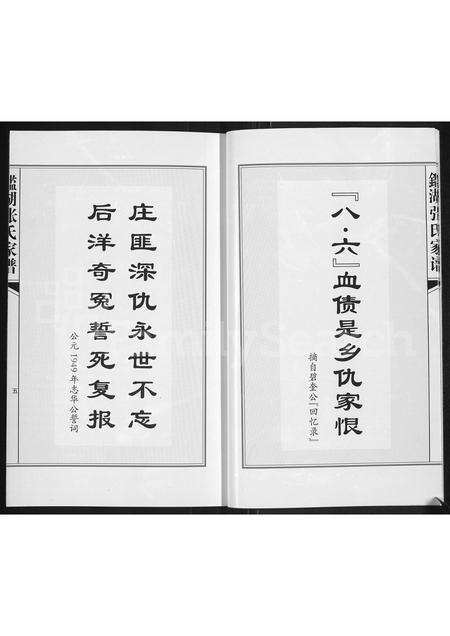 鑑湖张氏家谱
『八·六』血债是乡仇家恨
摘自碧奎公『回忆录』
庄匪深仇永世不忘
后洋奇冤誓死复报
公元1949年志华公誓词
鑑湖张氏家谱
五